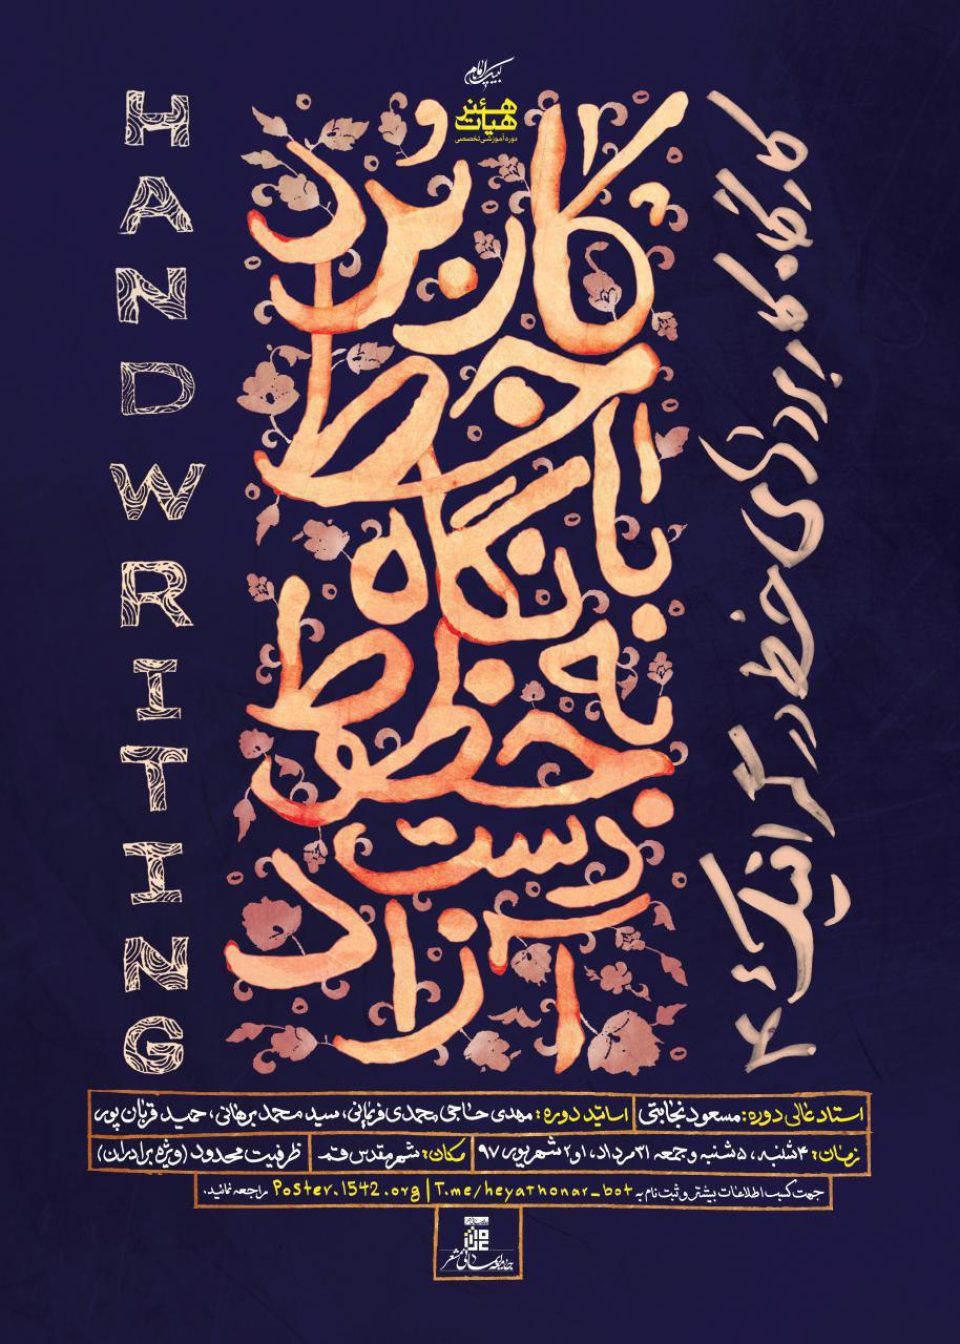 لبیک یا امام
هنر
هیات
دوره آموزشی تخصصی
HANDWRITING
کاربرد
خط
با نگاه
به خطوط
دست
آزاد
کارگاه کاربردهای خط در گرافیک ۲
استاد عالی دوره: مسعود نجابتی
اساتید دوره: مهدی حاجی محمدی فریمانی، سید محمد برهانی، حمید قربان پور
زمان: ۴شنبه، ۵شنبه و جمعه ۳۱ مرداد، ۱و۲ شهریور ۹۷
مکان: شهر مقدس قم
ظرفیت محدود (ویژه برادران)
جهت کسب اطلاعات بیشتر و ثبت نام به Poster.1542.org | T.me/heyathonar_bot مراجعه نمائید.